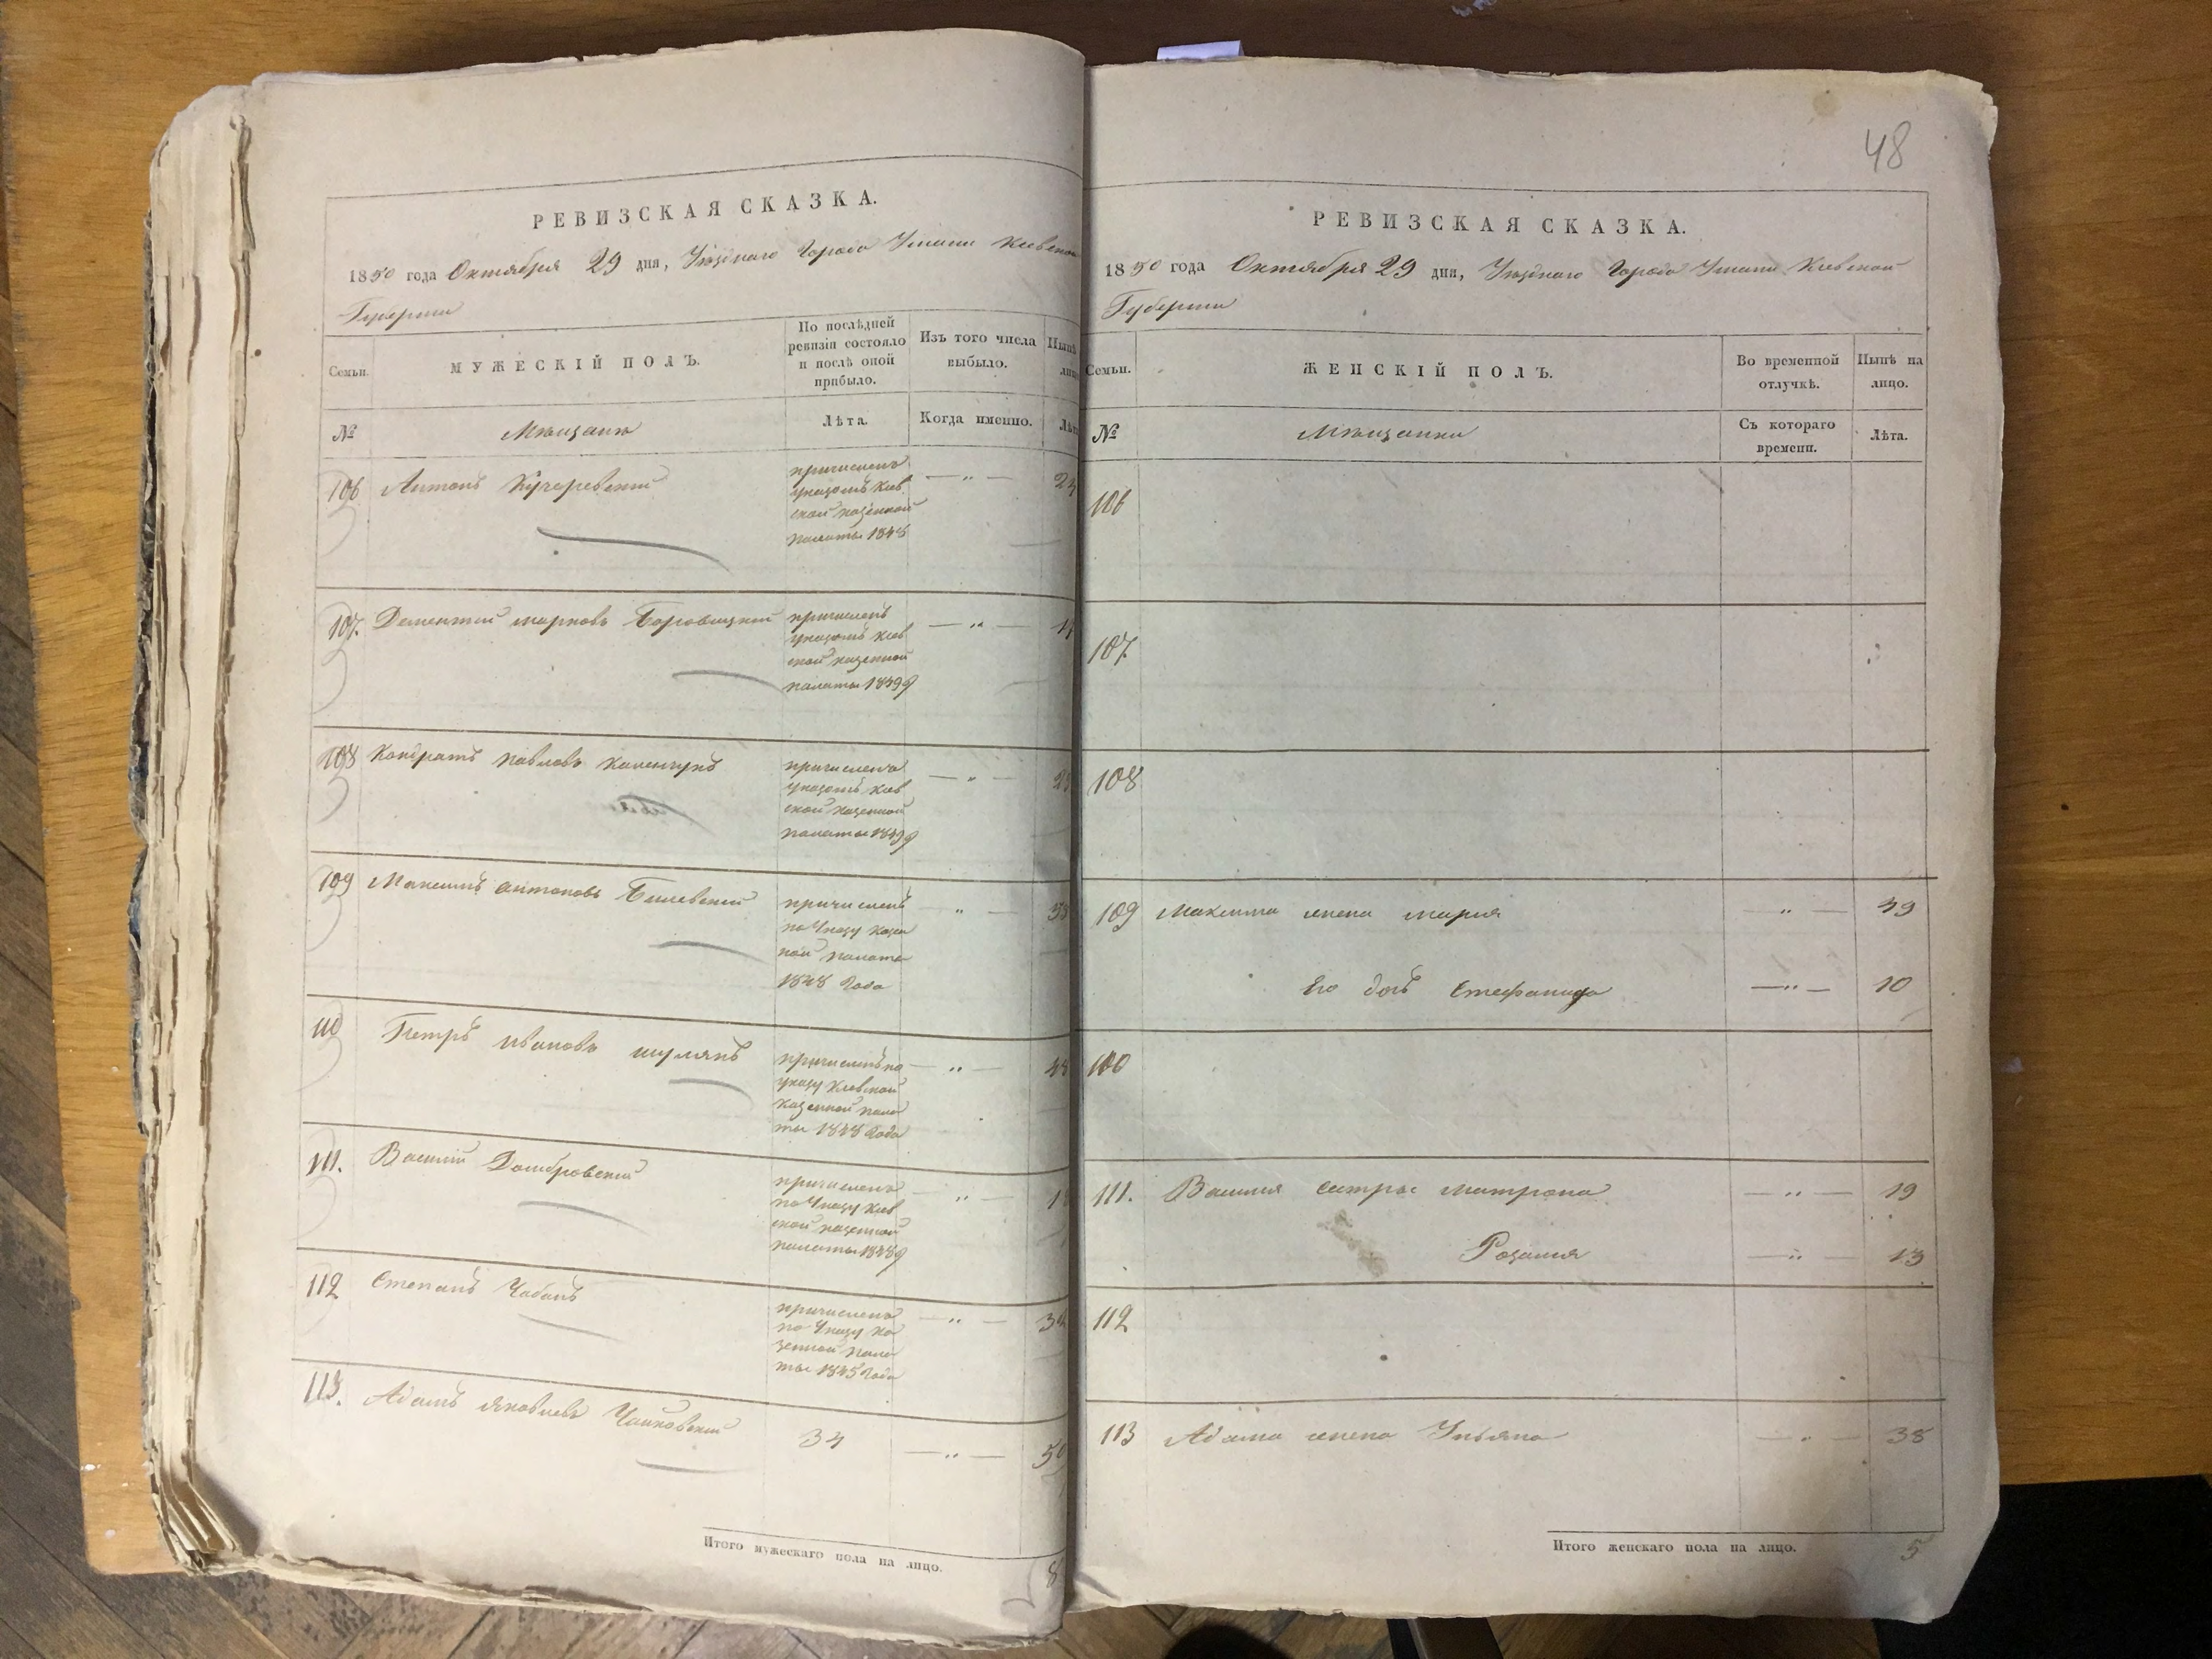 48
РЕВИЗСКАЯ СКАЗКА.
1850 года Октября 29 дня, Уѣзднаго Города Умани Кіевской
Губерніи
Семьи.
МУЖЕСКІЙ ПОЛЪ.
По послѣдней ревизіи состояло и послѣ оной прибыло.
Изъ того числа выбыло.
Нынѣ
№
Мѣщане
Лѣта.
Когда именно.
106 Антонъ Кучеревскій
причисленъ
указомъ Кіев
ской казенной
палаты 1848
— „ —
107. Дементій Марковъ Боровицкій
причисленъ
указомъ Кіев
ской казенной
палаты
— „ —
108 Кондратъ Павловъ
причисленъ
указомъ Кіев
ской казенной
палаты
— „ —
109 Максимъ Антоновъ Билевскій
причисленъ
по Указу казен
ной палаты
1848 Года
— „ —
110 Петръ Ивановъ Шулякъ
причисленъ по
указу Кіевской
казенной пала
ты 1848 Года
— „ —
111. Василій Домбровскій
причисленъ
по Указу Кіев
ской казенной
палаты
— „ —
112 Степанъ Чабанъ
причисленъ
по Указу ка
зенной пала
ты 1845 Года
— „ —
113. Адамъ Яковлевъ Чайковскій 34 — „ — 50
Итого мужескаго пола на лицо. 8
РЕВИЗСКАЯ СКАЗКА.
1850 года Октября 29 дня, Уѣзднаго Города Умани Кіевской
Губерніи
Семьи.
ЖЕНСКІЙ ПОЛЪ.
Во временной отлучкѣ.
Нынѣ на лицо.
№
Мѣщанки
Съ котораго времени.
Лѣта.
106
107.
108
109 Максима жена Марія — „ — 49
Его дочь Стефанида — „ — 10
110
111. Василія сестры Матрона — „ — 19
Розалія — „ — 13
112
113 Адама жена Ульяна — „ — 38
Итого женскаго пола на лицо. 5